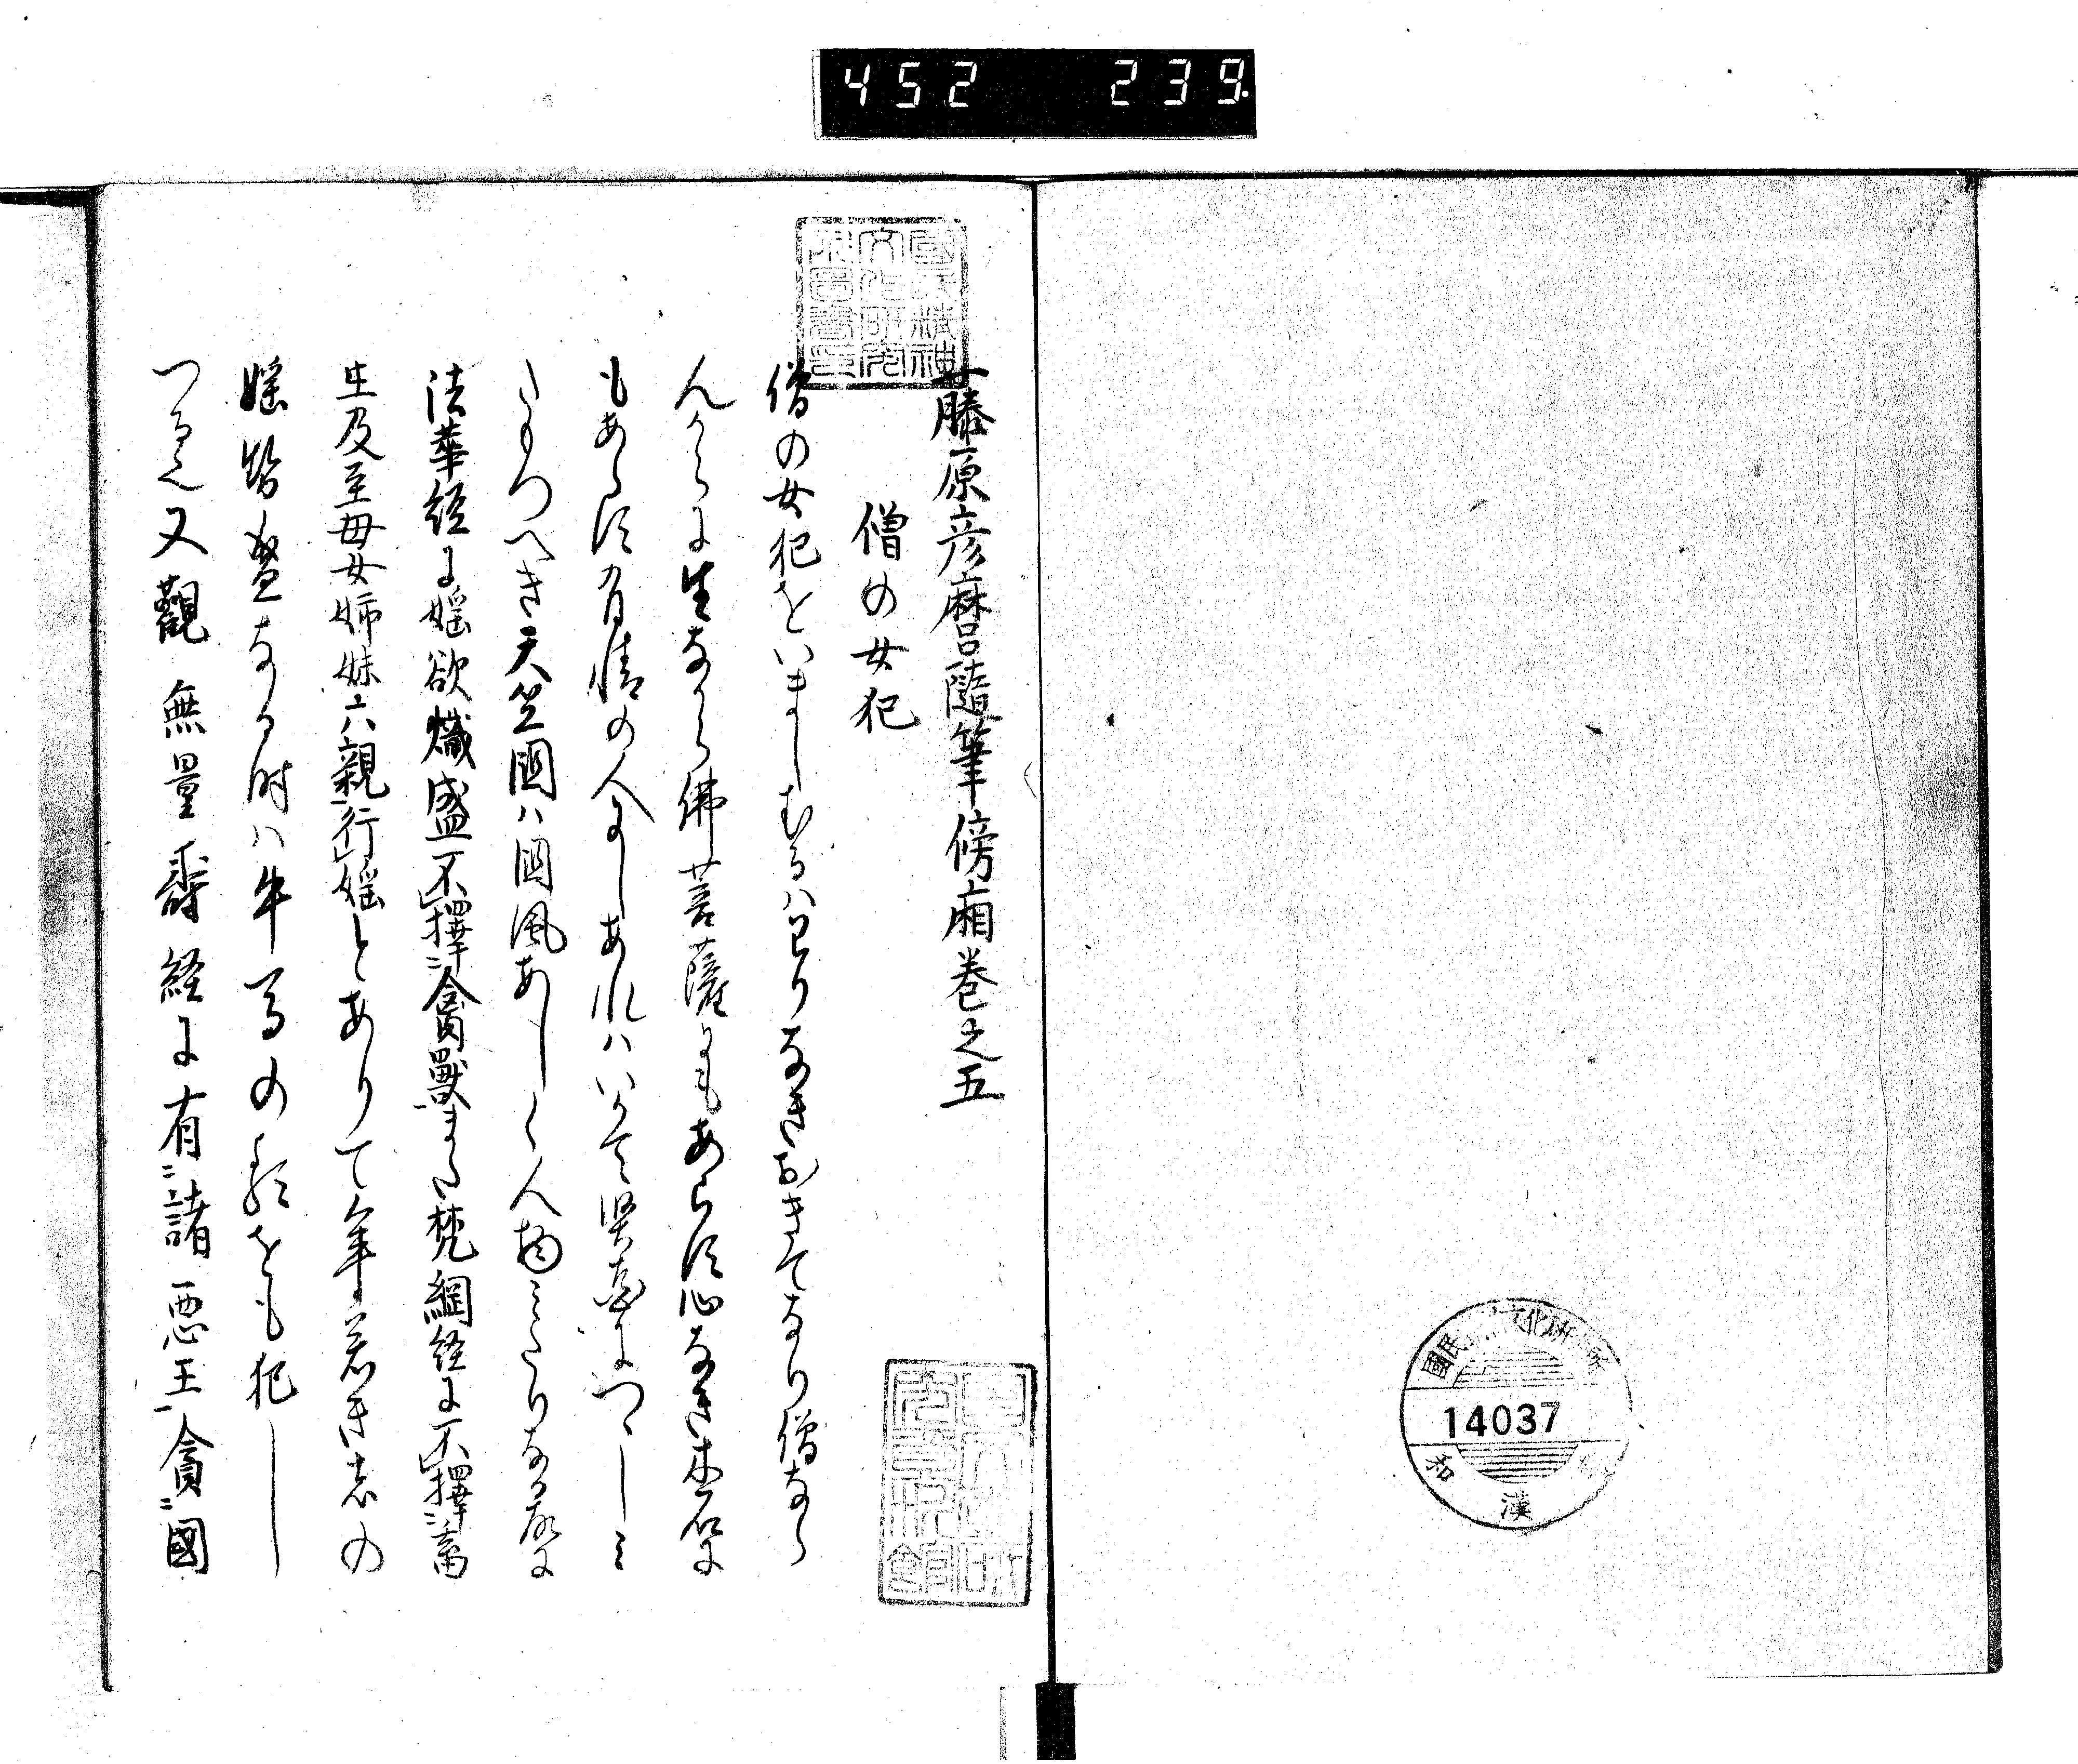 452 239
藤原彦麿呂隨筆傍廂巻之五
僧の女犯
僧の女犯をいましむるハわりなきおきてなり僧なら
んからに生なから佛菩薩にもあらす心なき木石に
もあらす有情の人にしあれハいかて堅固につゝしミ
たもつへき天竺國ハ國風あしく人物ミたりなる故に
法華經に婬欲熾盛不擇禽獸また梵網経に不擇畜
生及至母女姉妹六親行婬とありて年若き者の
婬 盛なる時ハ牛馬の類をも犯し
つ 又觀無量壽経に有諸惡王貪國
14037
和
漢